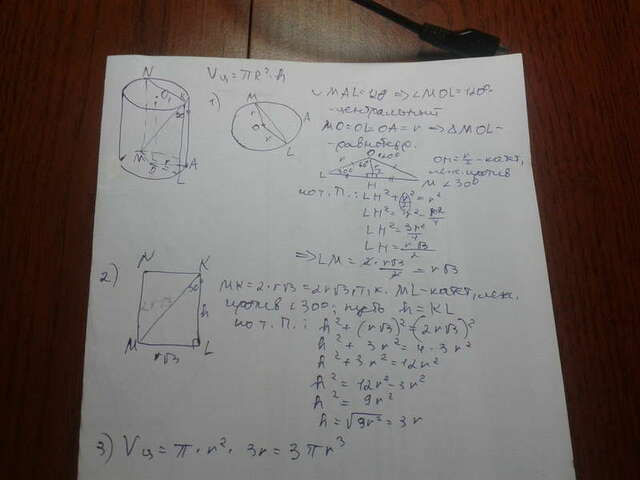 N
O₁
K
30°
M
O
r
L
A
Vц = πR²·h
1)
M
A
O
r
r
L
∪ MAL = 120° ⇒ ∠MOL = 120° -
- центральный
MO = OL = OA = r ⇒ △MOL -
- равнобедр.
O
r
60°
60°
r
L
30°
H
M
OH = r/2 - катет,
леж. против
∠30°
по т. П.: LH² + (r/2)² = r²
LH² = r² - r²/4
LH² = 3r²/4
LH = r√3/2
⇒ LM = 2·r√3/2 = r√3
2)
N
K
30°
2r√3
h
M
r√3
L
MK = 2·r√3 = 2r√3, т.к. ML - катет, леж.
против ∠30°; пусть h = KL
по т. П.: h² + (r√3)² = (2r√3)²
h² + 3r² = 4·3r²
h² + 3r² = 12r²
h² = 12r² - 3r²
h² = 9r²
h = √9r² = 3r
3) Vц = π·r²·3r = 3πr³